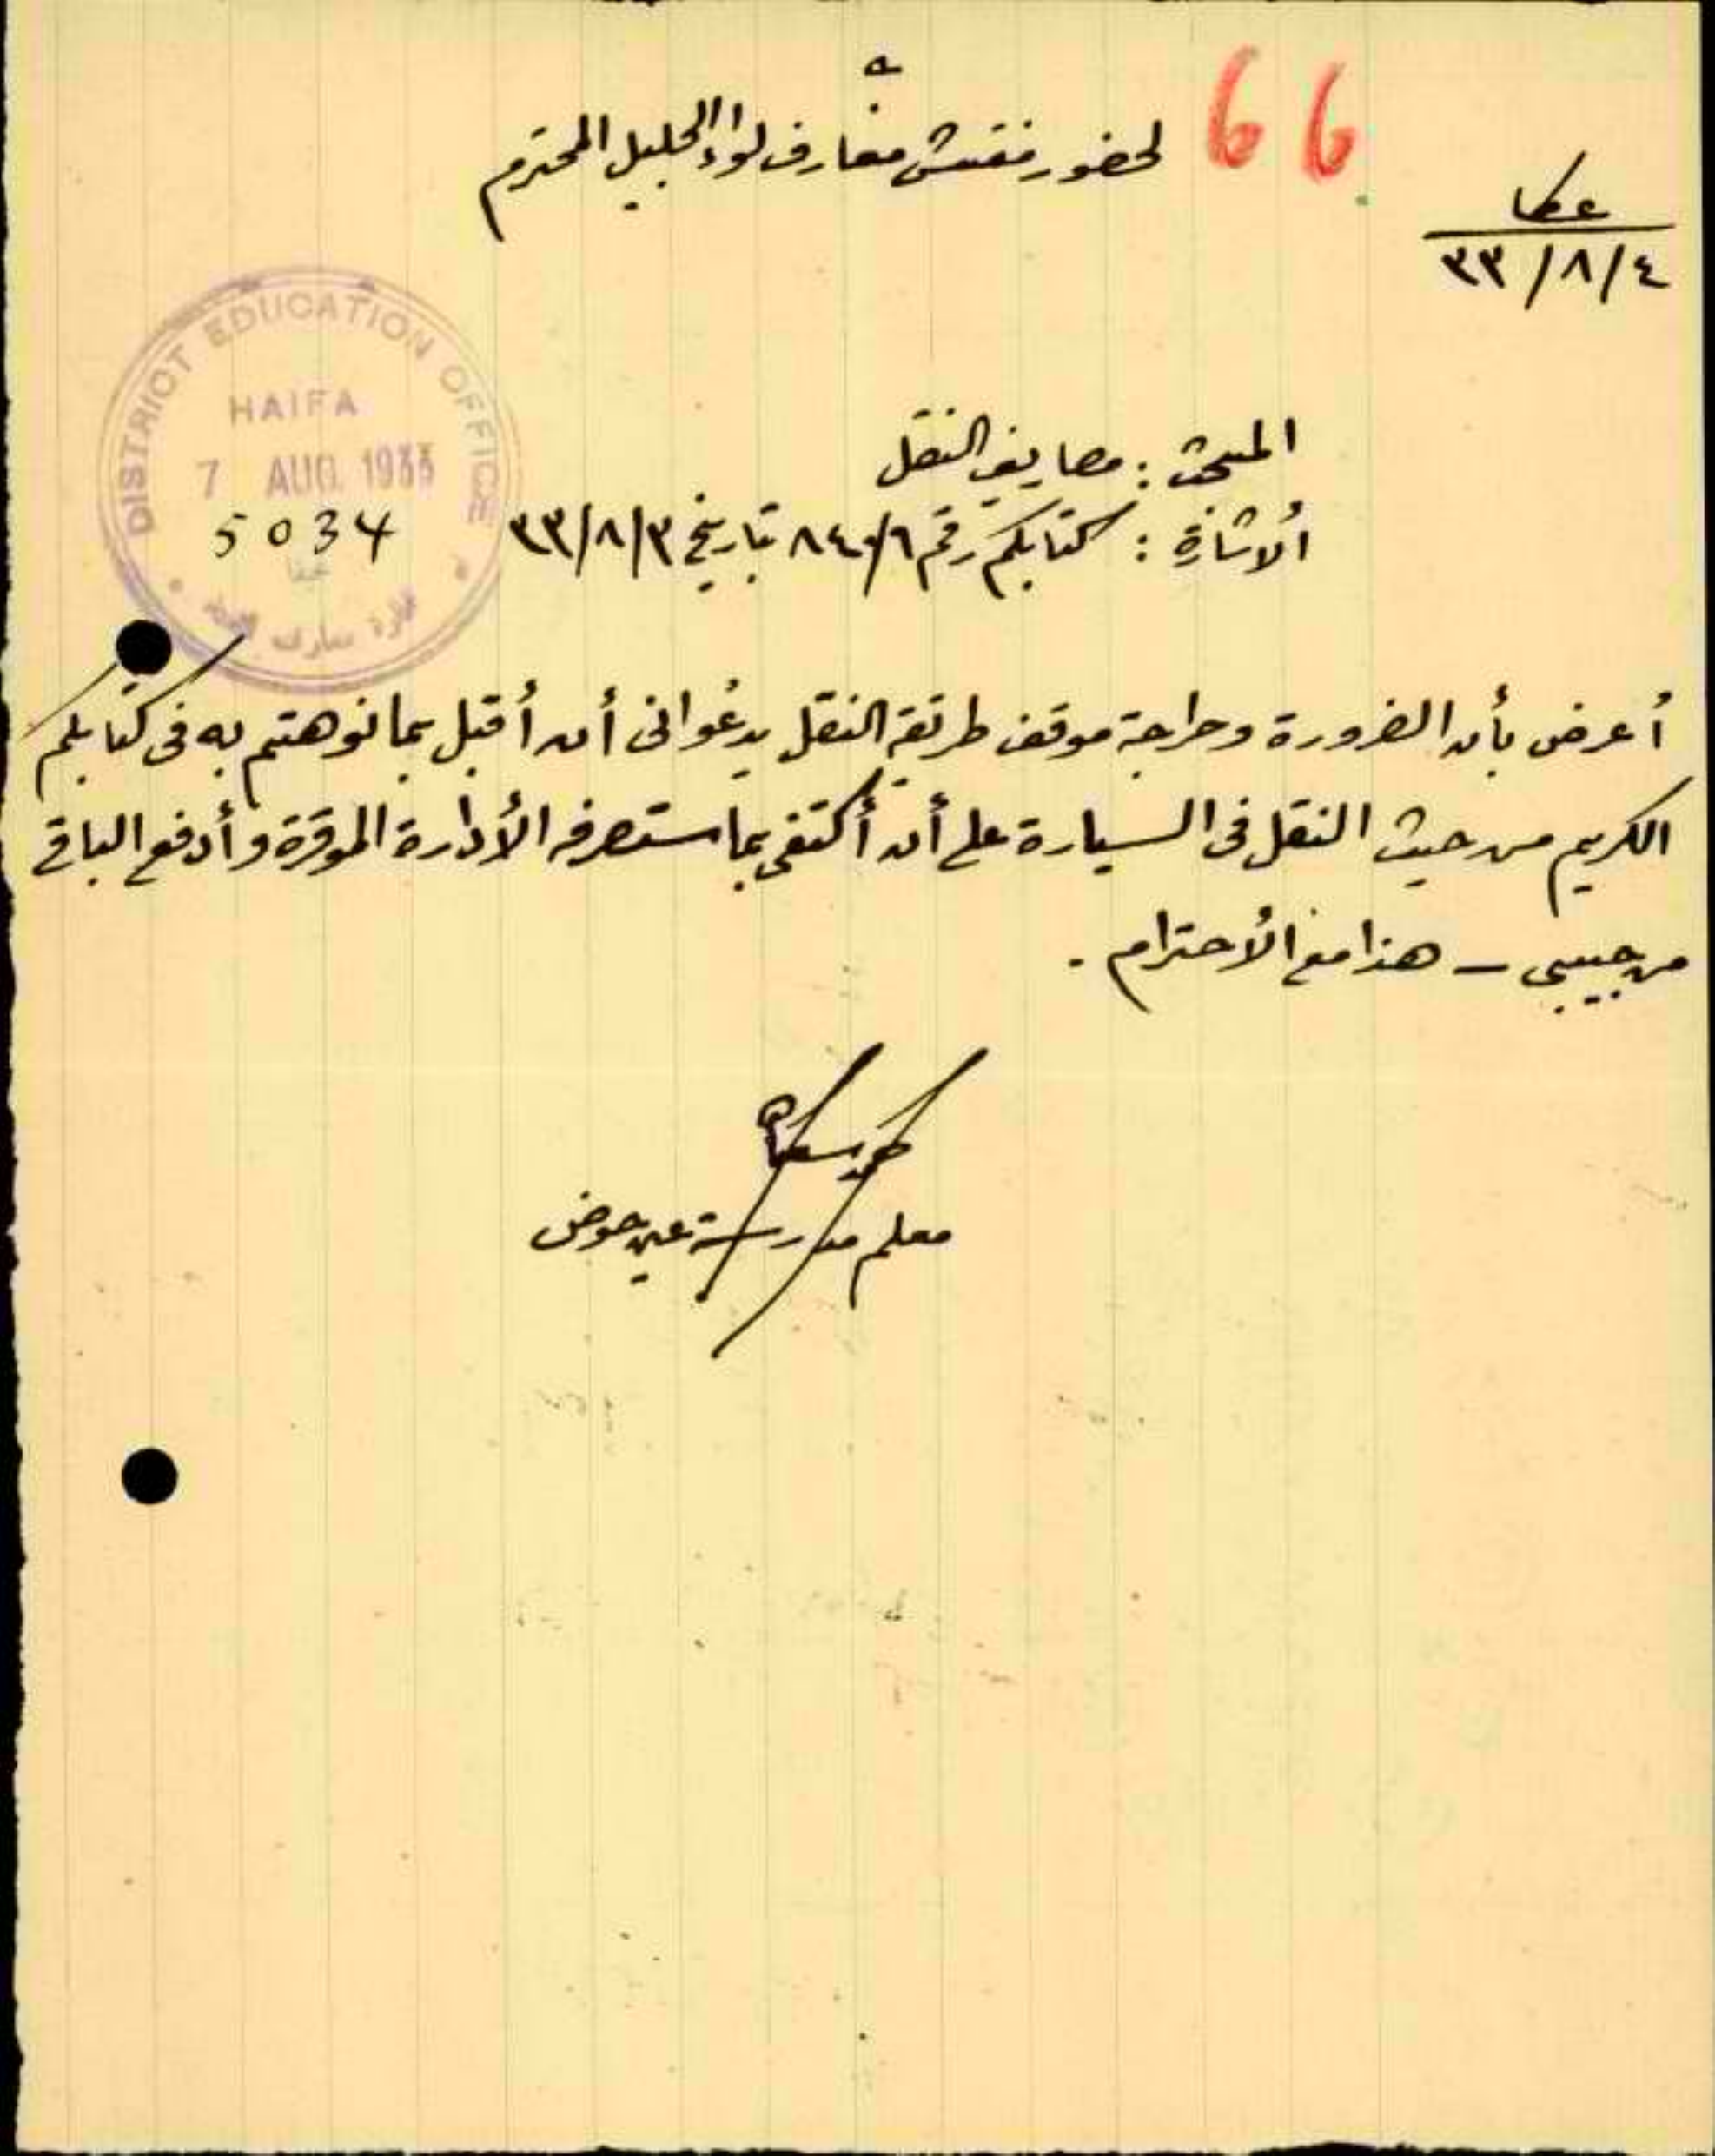 66
لحضور مفتش معارف لواء الجليل المحترم
عكا
٤/٨/٣٣
DISTRICT EDUCATION OFFICE
HAIFA
7 AUG. 1933
5034
المبحث : مصاريف النقل
الأشارة : كتابكم رقم ٨٤٠/٦ تاريخ ٣٣/٨/٣
أعرض بأن الضرورة وحراجة موقف طريقة النقل يدعواني أن أقبل بما نوهتم به في كتابكم
الكريم من حيث النقل في السيارة على أن أكتفي بما ستصرفه الأدارة الموقرة وأدفع الباقي
من جيبي – هذا مع الأحترام .
معلم مدرسة عين حوض